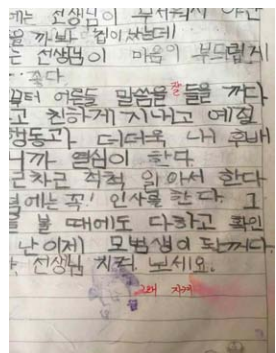 에는 선생님이 무서워서 야단
을 까봐 겁이 났는데
는 선생님이 마음이 부드럽게
좋다.
부터 어른들 말씀을 잘 들을 꺼다
고 친하게 지내고 예절
행동고 더더욱 내 후배
니까 열심이 한다
근차근 척척 일아서 한다
에는 꼭! 인사를 한다. 그
을 볼 때에도 다하고 확인
난 이제 모범생이 됀꺼다.
선생님 지켜 보세요.
그래 지켜